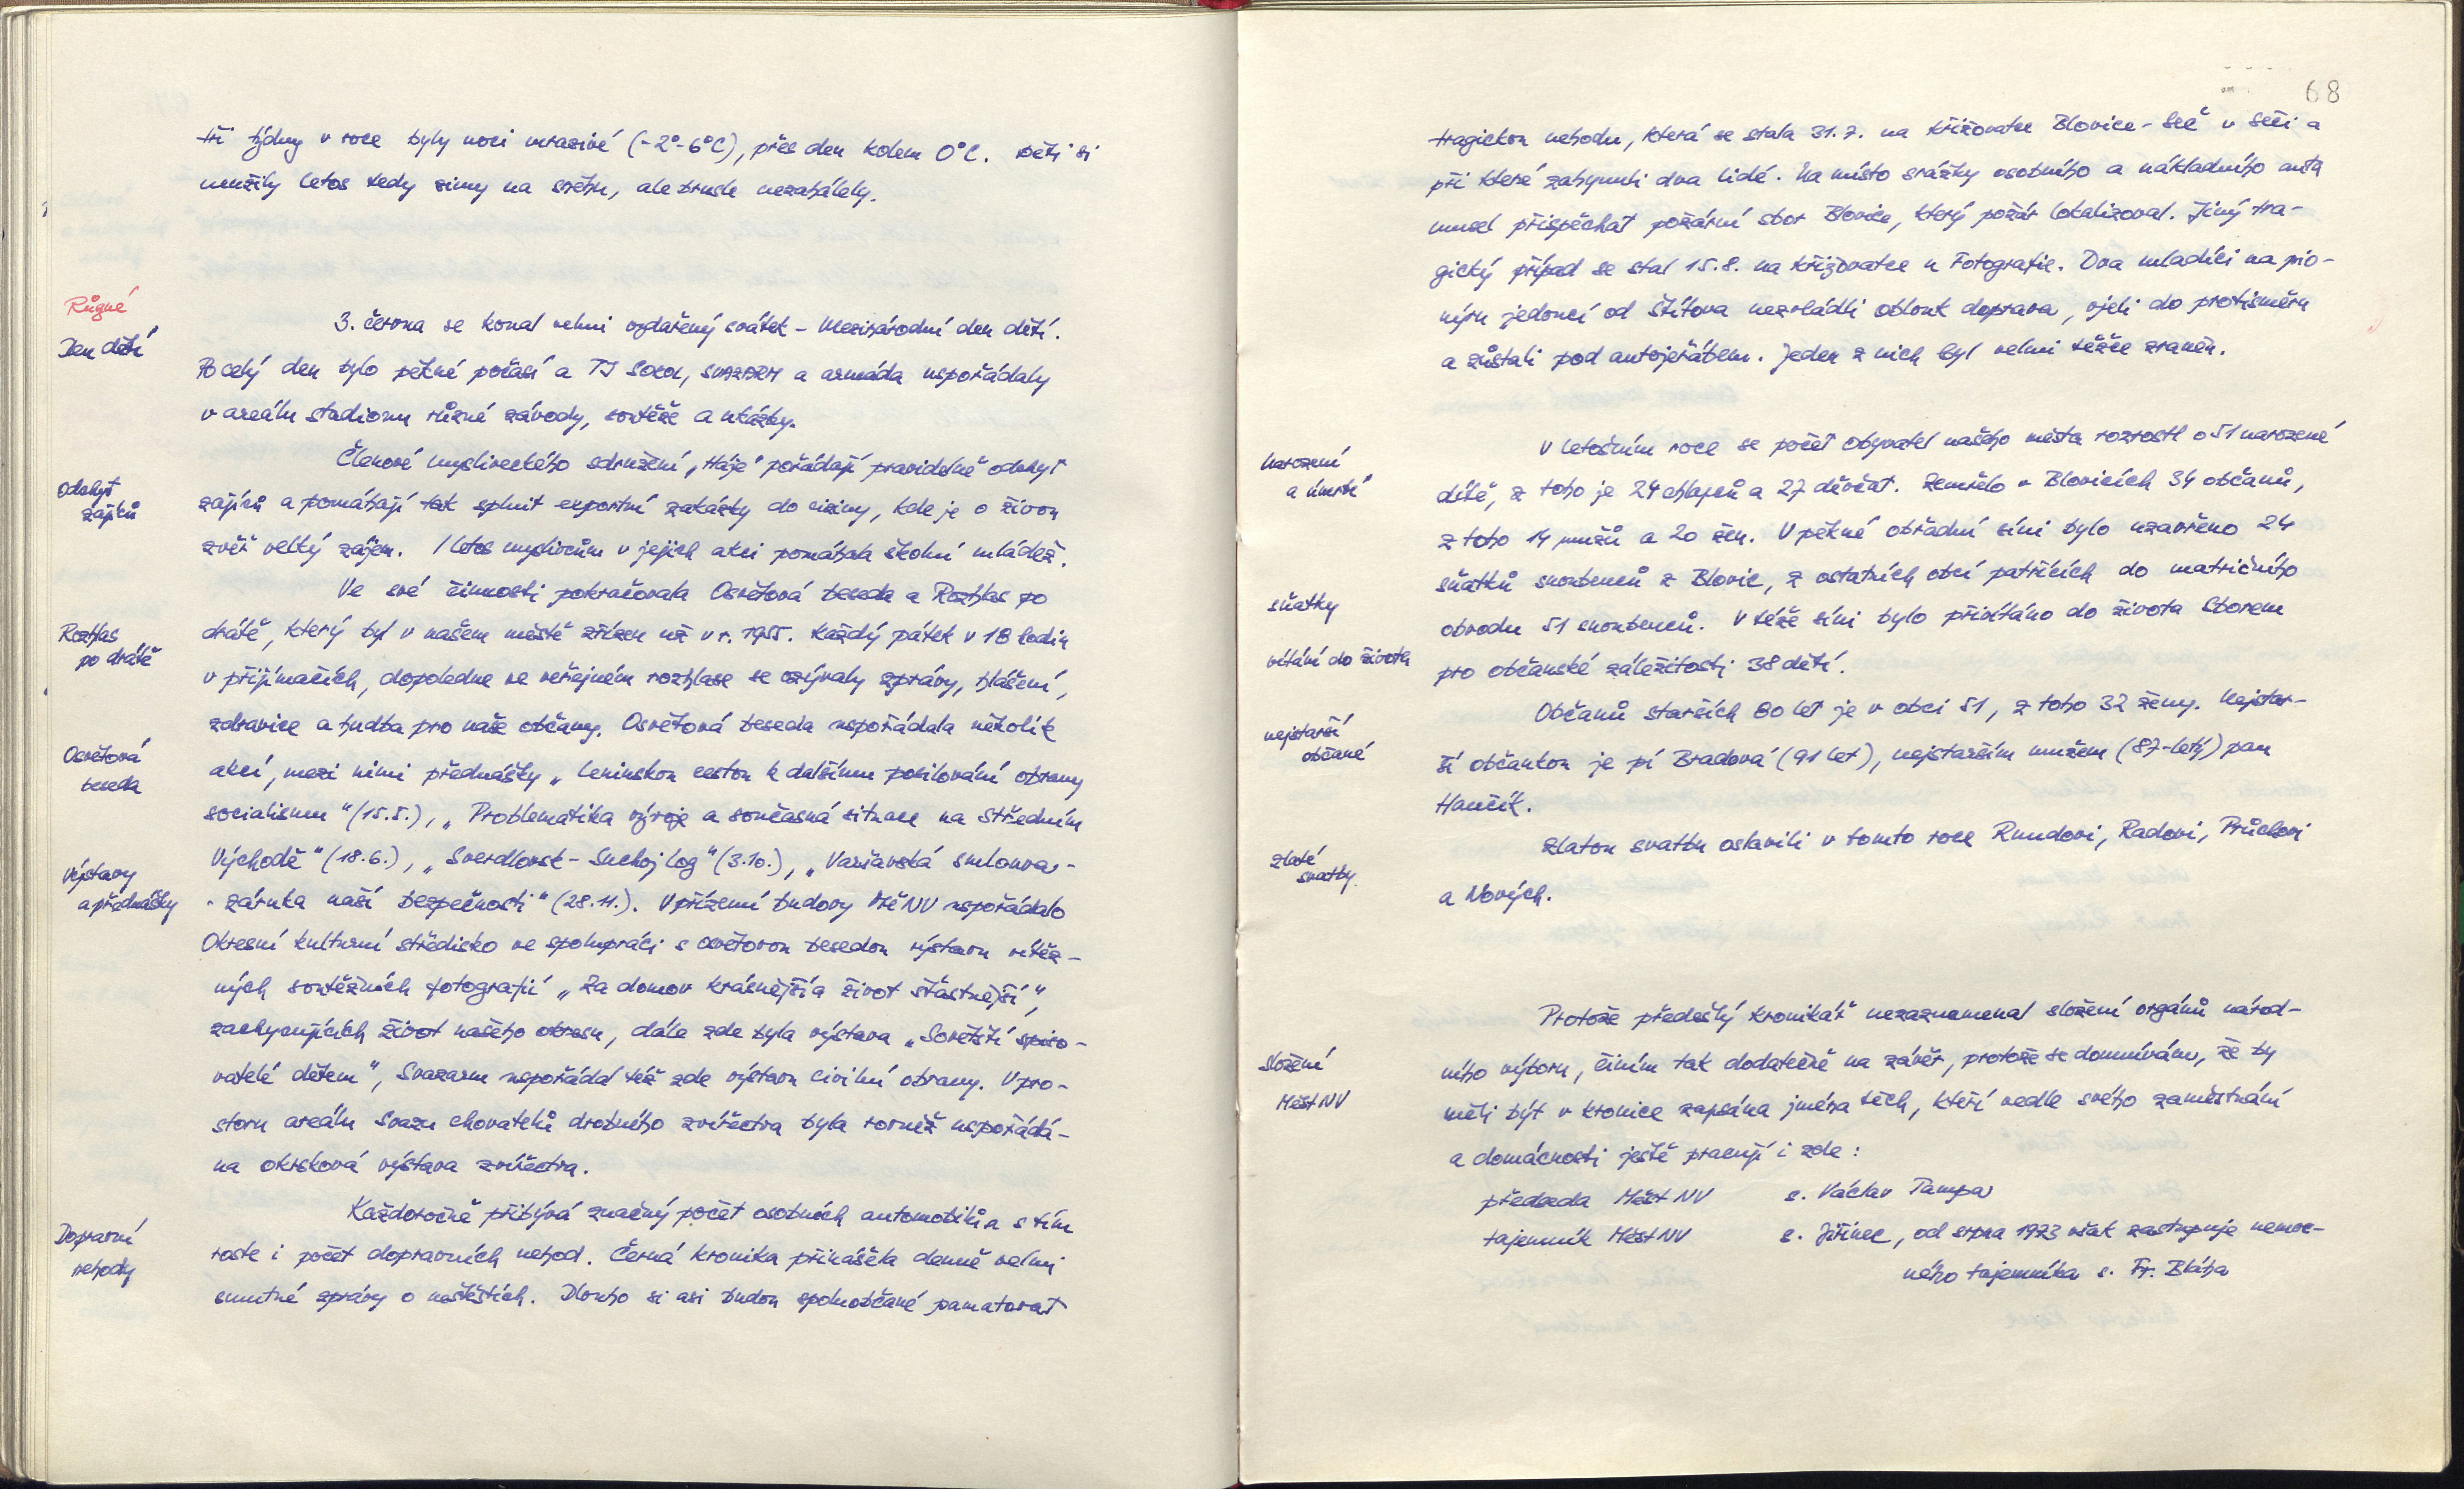 tři týdny v roce byly noci mrazivé (-2°-6°C), přes den kolem 0°C. Děti si
neužily letos tedy zimy na sněhu, ale brusle nezahálely.
Různé
Den dětí
3. června se konal velmi vydařený svátek - Mezinárodní den dětí.
Po celý den bylo pěkné počasí a TJ Sokol, SVAZARM a armáda uspořádaly
v areálu stadionu různé závody, soutěže a ukázky.
Odchyt
zajíců
Členové mysliveckého sdružení „Háje" pořádají pravidelně odchyt
zajíců a pomáhají tak splnit exportní zakázky do ciziny, kde je o živou
zvěř velký zájem. I letos myslivcům v jejich akci pomáhala školní mládež.
Rozhlas
po drátě
Ve své činnosti pokračovala Osvětová beseda a Rozhlas po
drátě, který byl v našem městě zřízen už v r. 1955. Každý pátek v 18 hodin
v přijímačích, dopoledne ve veřejném rozhlase se ozývaly zprávy, hlášení,
zdravice a hudba pro naše občany. Osvětová beseda uspořádala několik
Osvětová
beseda
akcí, mezi nimi přednášky „Leninskou cestou k dalšímu posilování obrany
socialismu" (15.5.), „Problematika vývoje a současná situace na Středním
Výstavy
a přednášky
Východě" (18.6.), „Sverdlovsk - Suchoj Log" (3.10.), „Varšavská smlouva -
- záruka naší bezpečnosti" (28.11.). V přízemí budovy MěNV uspořádalo
Okresní kulturní středisko ve spolupráci s osvětovou besedou výstavu vítěz-
ných soutěžních fotografií „Za domov krásnější a život šťastnější",
zachycujících život našeho okresu, dále zde byla výstava „Sovětští spiso-
vatelé dětem", Svazarm uspořádal též zde výstavu civilní obrany. V pro-
storu areálu Svazu chovatelů drobného zvířectva byla rovněž uspořádá-
na okrsková výstava zvířectva.
Dopravní
nehody
Každoročně přibývá značný počet osobních automobilů a s tím
roste i počet dopravních nehod. Černá kronika přinášela denně velmi
smutné zprávy o neštěstích. Dlouho si asi budou spoluobčané pamatovat
68
tragickou nehodu, která se stala 31.7. na křižovatce Blovice - Seč v Seči a
při které zahynuli dva lidé. Na místo srážky osobního a nákladního auta
musel přispěchat požární sbor Blovice, který požár lokalizoval. Jiný tra-
gický případ se stal 15.8. na křižovatce u Fotografie. Dva mladíci na pio-
nýru jedoucí od Štítova nezvládli oblouk doprava, vjeli do protisměru
a zůstali pod autojeřábem. Jeden z nich byl velmi těžce zraněn.
Narození
a úmrtí
V letošním roce se počet obyvatel našeho města rozrostl o 51 narozené
dítě, z toho je 24 chlapců a 27 děvčat. Zemřelo v Blovicích 34 občanů,
z toho 14 mužů a 20 žen. V pěkné obřadní síni bylo uzavřeno 24
sňatků snoubenců z Blovic, z ostatních obcí patřících do matričního
sňatky
obvodu 51 snoubenců. V téže síni bylo přivítáno do života Sborem
vítání do života
pro občanské záležitosti 38 dětí.
nejstarší
občané
Občanů starších 80 let je v obci 51, z toho 32 ženy. Nejstar-
ší občankou je pí Bradová (91 let), nejstarším mužem (87-letý) pan
Hančík.
zlaté
svatby
Zlatou svatbu oslavili v tomto roce Rundovi, Radovi, Průchovi
a Nových.
Složení
MěstNV
Protože předešlý kronikář nezaznamenal složení orgánů národ-
ního výboru, činím tak dodatečně na závěr, protože se domnívám, že by
měli být v kronice zapsána jména těch, kteří vedle svého zaměstnání
a domácnosti ještě pracují i zde:
předseda MěstNV s. Václav Tampa
tajemník MěstNV s. Jiřinec, od srpna 1973 však zastupuje nemoc-
ného tajemníka s. Fr. Bláha